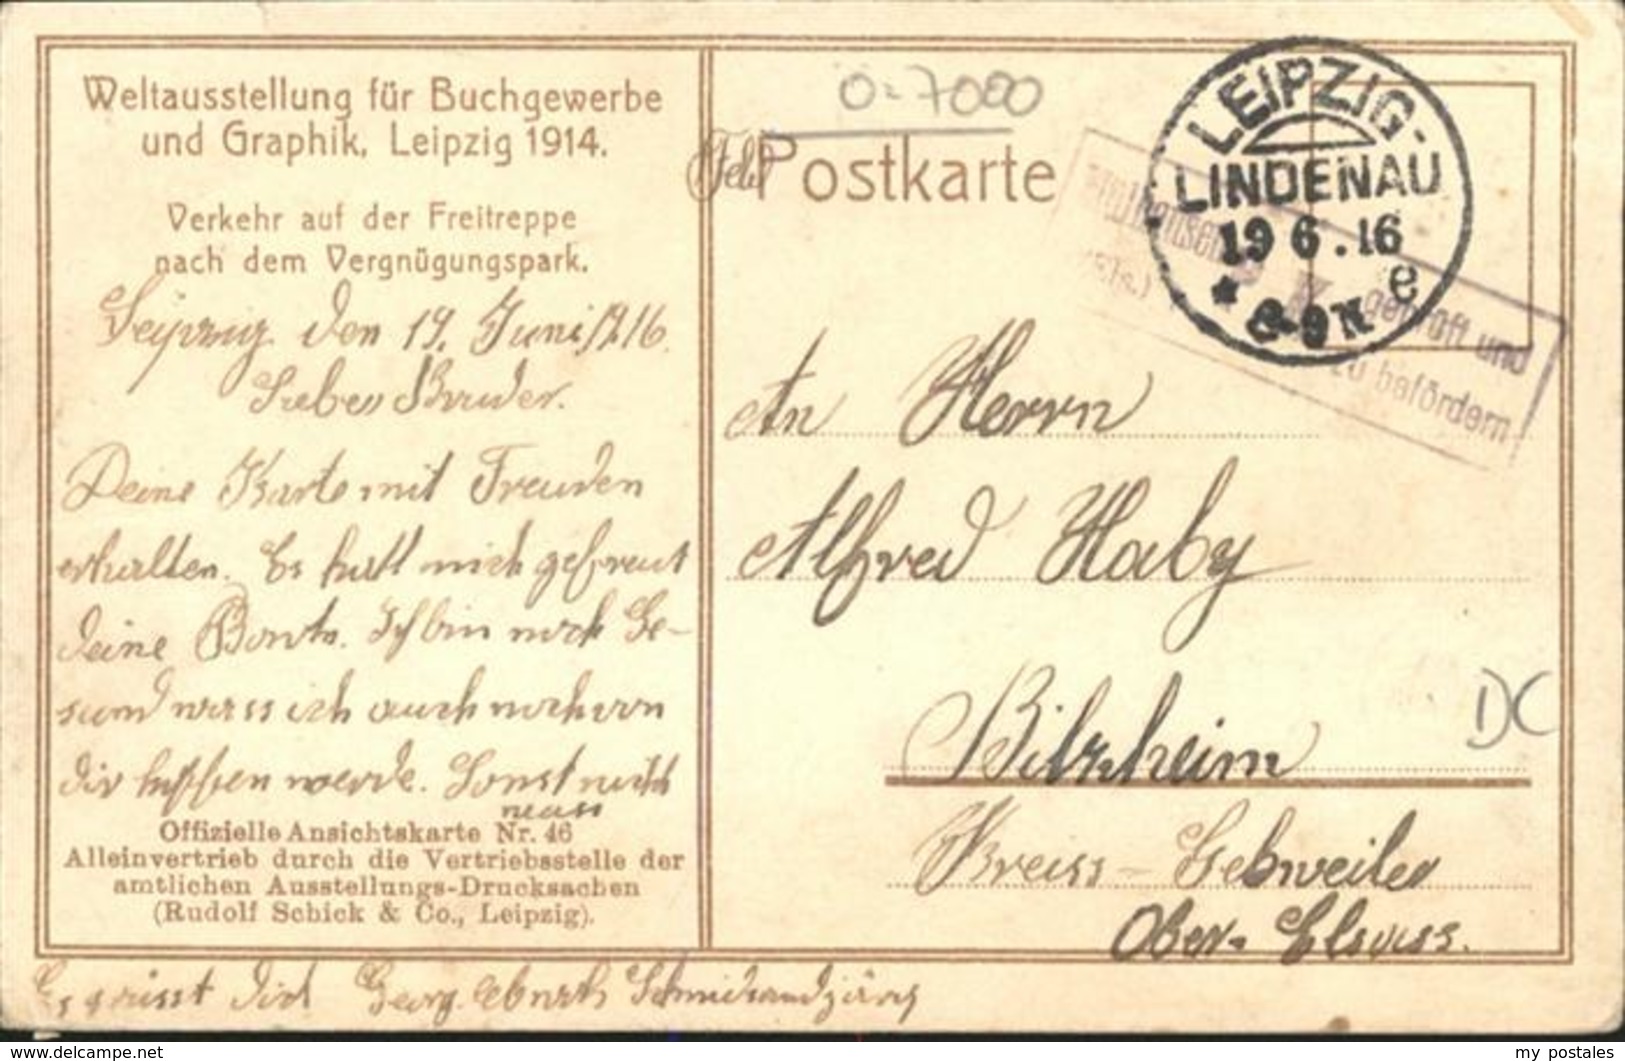 Weltausstellung für Buchgewerbe
und Graphik, Leipzig 1914.
Verkehr auf der Freitreppe
nach dem Vergnügungspark.
Leipzig den 19. Juni 1916.
Lieber Bruder.
Deine Karte mit Freuden
erhalten. Es hatt mich gefreut
deine Ich bin noch Ge-
sund wass ich auch noch von
dir hoffen werde. Sonst nichts
neuss
Offizielle Ansichtskarte Nr. 46
Alleinvertrieb durch die Vertriebsstelle der
amtlichen Ausstellungs-Drucksachen
(Rudolf Schick & Co., Leipzig).
Es grüsst dich Georg
0-7000
Feld Postkarte
LEIPZIG-
LINDENAU
19 6.16
* 8-9 N e
P. K. geprüft und
zu befördern
(Els.)
An Herrn
Alfred Haby
Bilzheim
Kreiss-Gebweiler
Ober-Elsass.
DC
my postales
https://www.delcampe.net